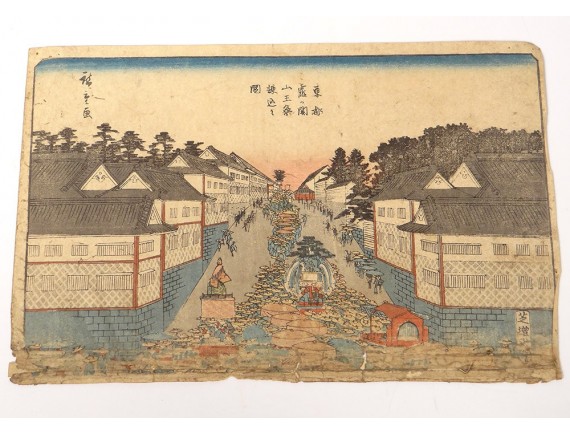 東都
霞の関
山王祭
練込之
図
廣重画